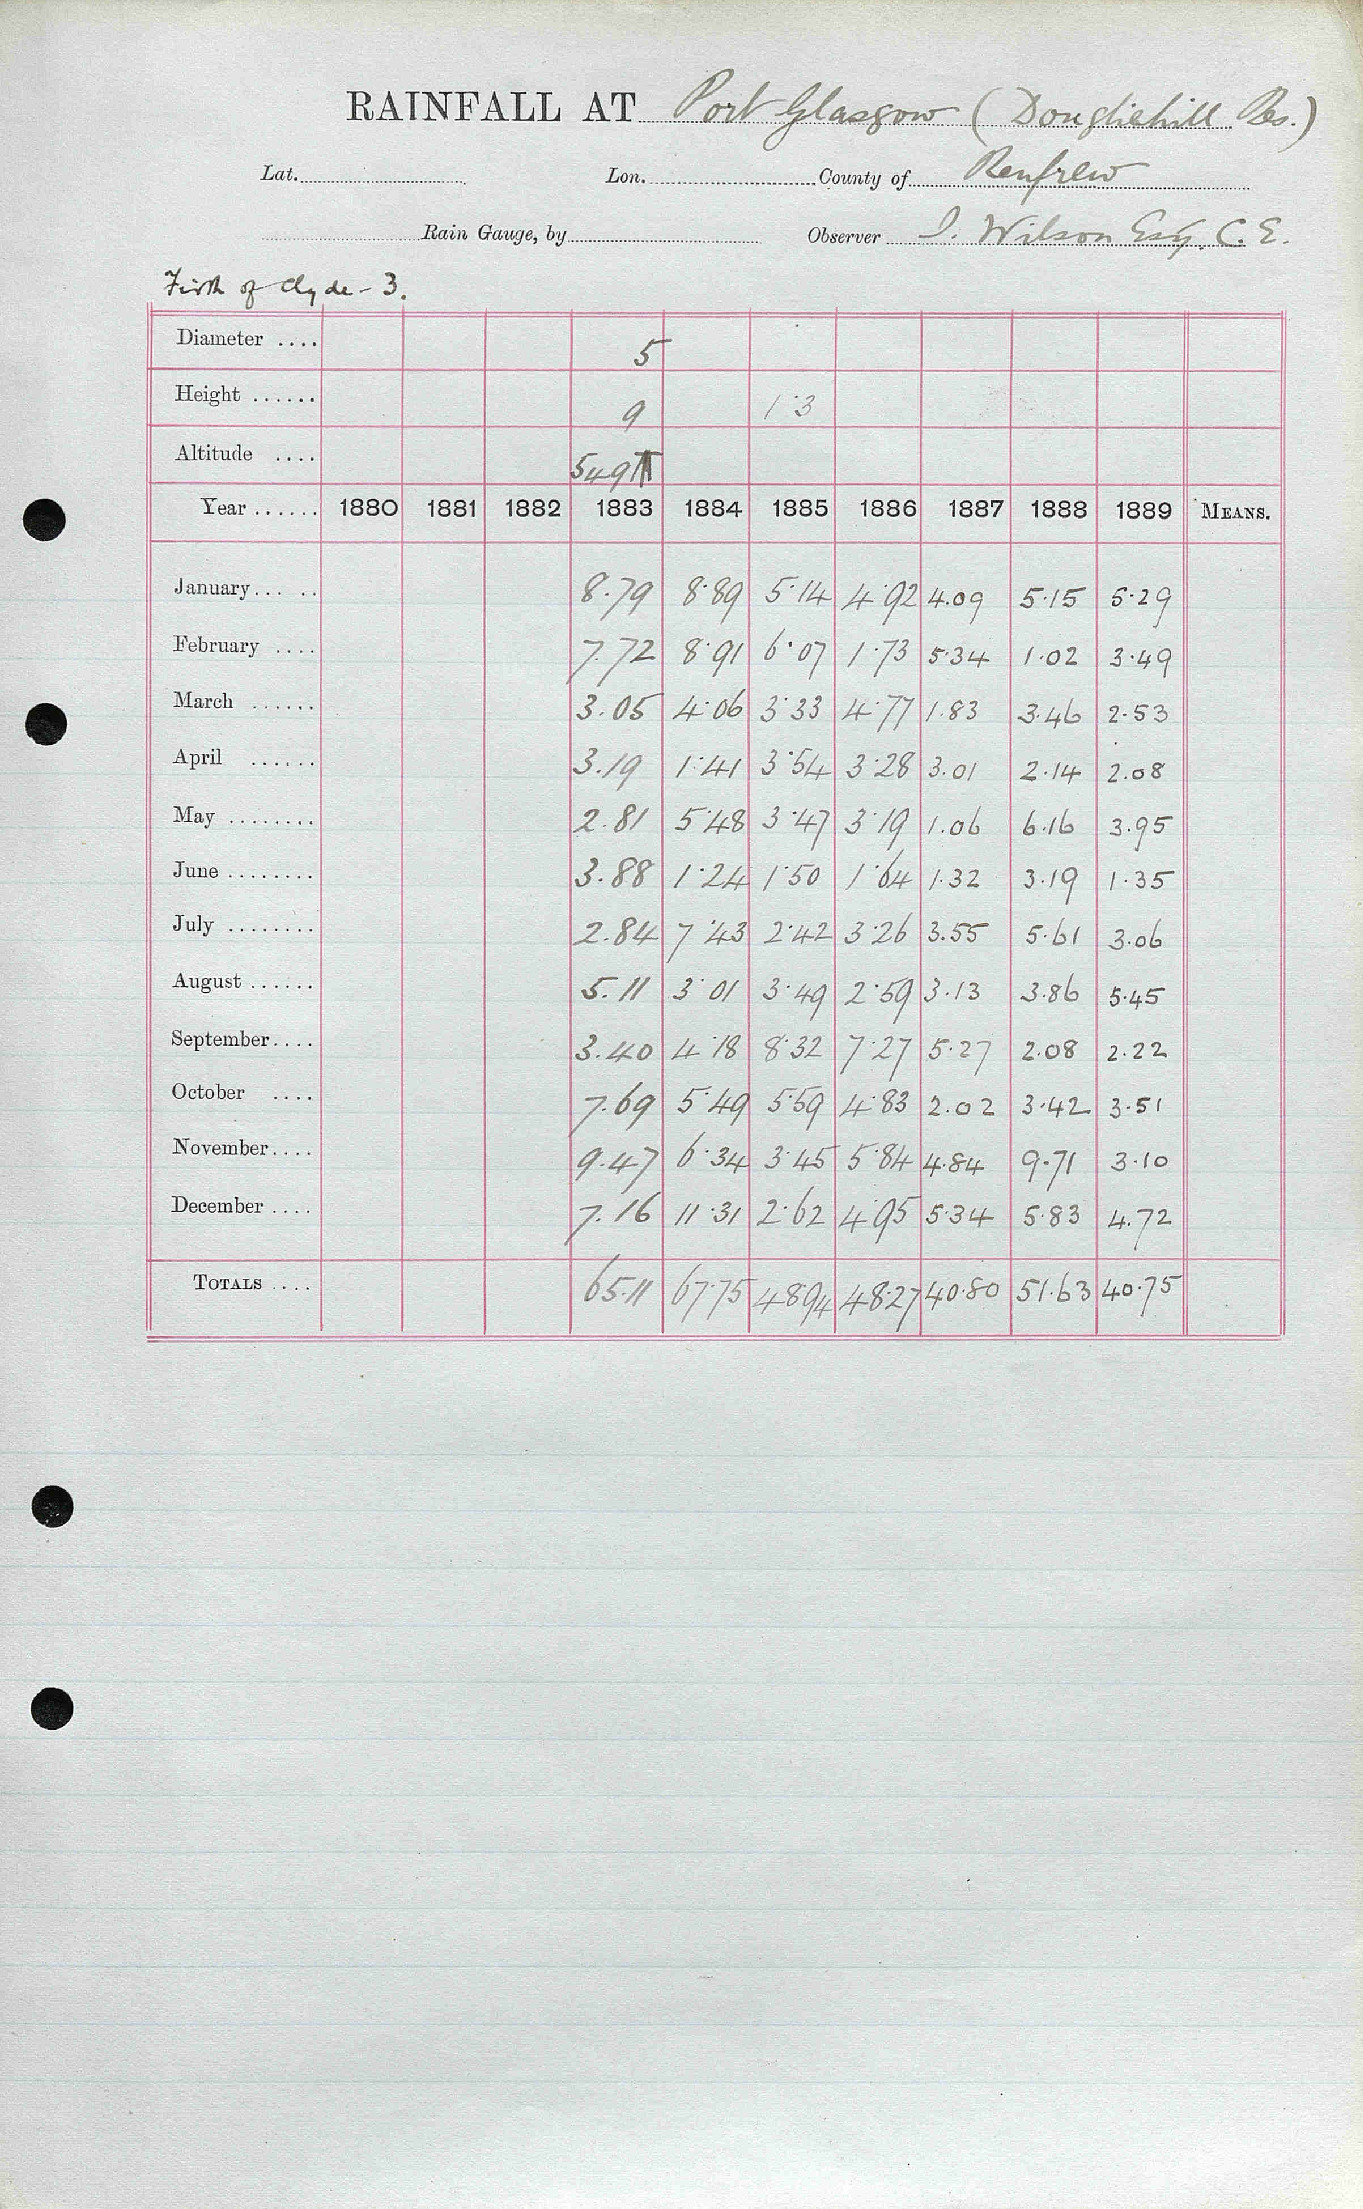 RAINFALL AT Port Glasgow (Dougliehill Res.)
Lat. Lon. County of Renfrew
Rain Gauge, by Observer I. Wilson Esq. C.E.
Firth of Clyde - 3.
Diameter .... 5
Height ...... 9 1·3
Altitude .... 549
Year ...... 1880 1881 1882 1883 1884 1885 1886 1887 1888 1889 MEANS.
January... .. 8.79 8·89 5·14 4·92 4.09 5·15 5·29
February .... 7.72 8·91 6·07 1·73 5·34 1·02 3·49
March ...... 3.05 4·06 3·33 4·77 1.83 3·46 2·53
April ...... 3.19 1·41 3·54 3·28 3.01 2·14 2.08
May ........ 2.81 5·48 3·47 3·19 1.06 6·16 3.95
June ........ 3.88 1·24 1·50 1·64 1.32 3·19 1·35
July ........ 2.84 7·43 2·42 3·26 3.55 5·61 3.06
August ...... 5.11 3·01 3·49 2·59 3·13 3.86 5·45
September.... 3.40 4·18 8·32 7·27 5·27 2.08 2.22
October .... 7.69 5·49 5·59 4·83 2.02 3·42 3·51
November.... 9.47 6·34 3·45 5·84 4.84 9·71 3·10
December .... 7.16 11·31 2·62 4·95 5·34 5·83 4.72
TOTALS .... 65.11 67·75 48·94 48·27 40·80 51·63 40·75